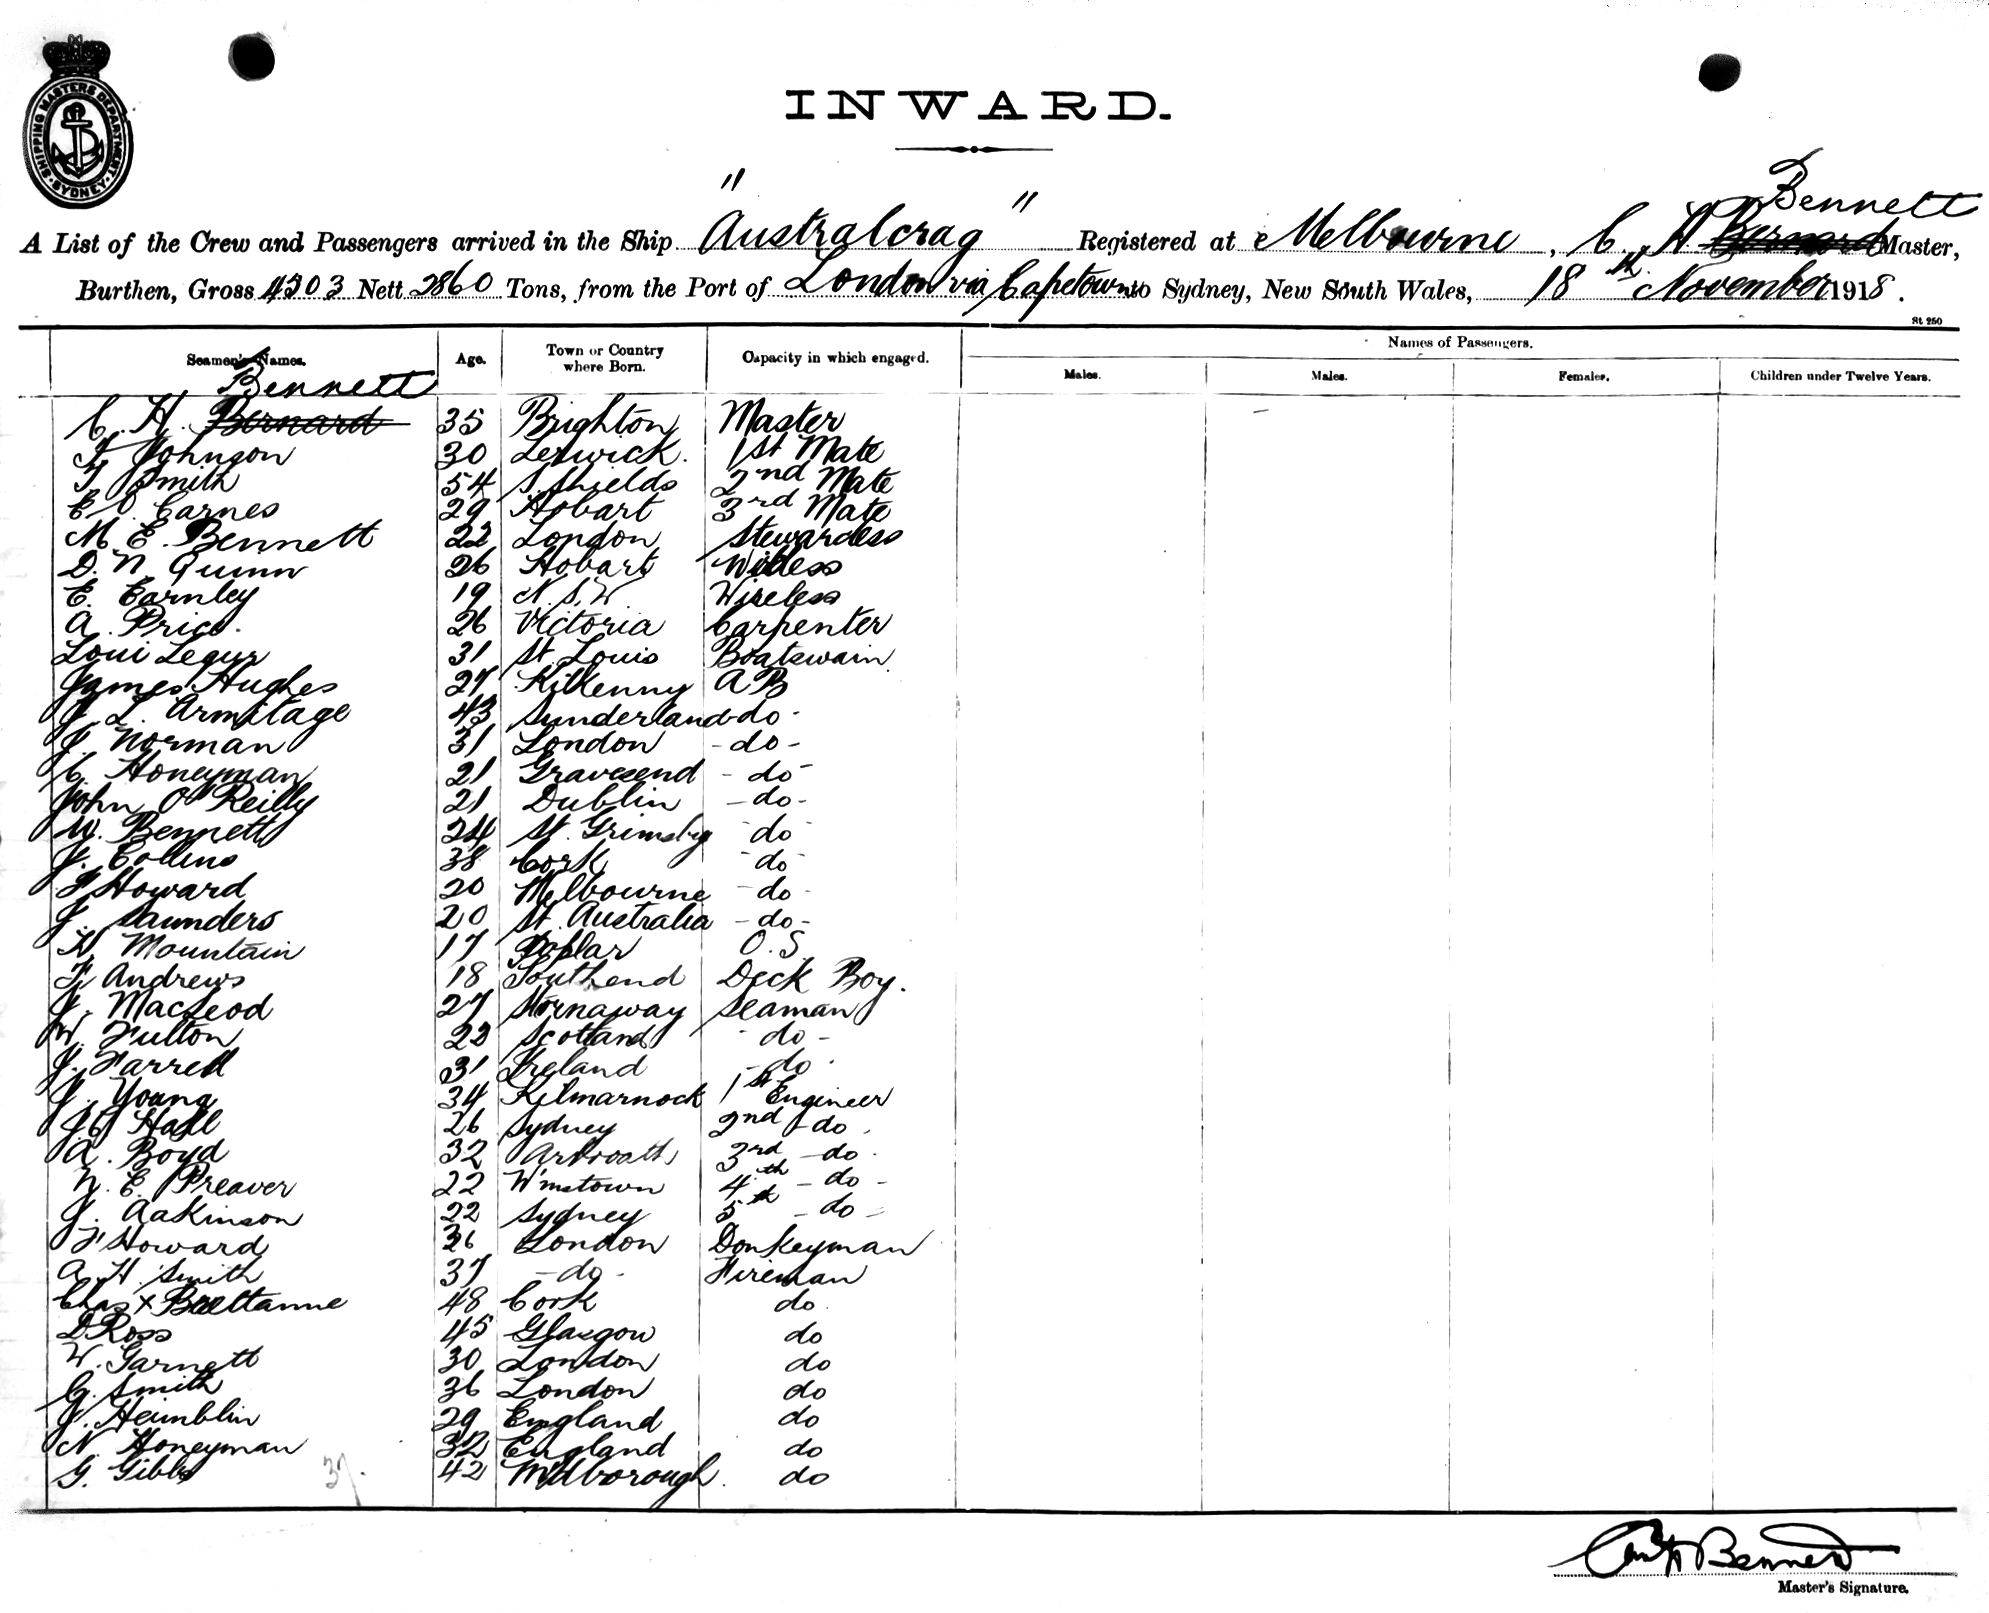 SHIPPING MASTERS DEPARTMENT. SYDNEY.
INWARD.
Bennett
A List of the Crew and Passengers arrived in the Ship "Australcrag" Registered at Melbourne, C. H. Bernard Master,
Burthen, Gross 4503 Nett 2860 Tons, from the Port of London via Capetown to Sydney, New South Wales, 18th November 1918.
St 250
Seamen's Names. Age. Town or Country where Born. Capacity in which engaged. Names of Passengers.
Males. Males. Females. Children under Twelve Years.
Bennett
C. H. Bernard 35 Brighton Master
F Johnson 30 Lerwick. 1st Mate
T Smith 54 S. Shields 2nd Mate
E Carnes 29 Hobart 3rd Mate
M. E. Bennett 22 London Stewardess
D. N Quinn 26 Hobart Wireless
E. Carnley 19 N.S.W. Wireless
A. Price. 26 Victoria Carpenter
Loui Legur 31 St. Louis Boatswain
James Hughes 27 Kilkenny AB
J. L. Armitage 43 Sunderland -do-
J. Norman 31 London -do-
C. Honeyman 21 Gravesend -do-
John O'Reilly 21 Dublin -do-
W. Bennett 24 St. Grimsby -do-
J. Collins 38 Cork -do-
F Howard 20 Melbourne -do-
J. Saunders 20 St. Australia -do-
H Mountain 17 Poplar O.S.
F. Andrews 18 Southend Deck Boy.
J. MacLeod 27 Stornaway Seaman
W. Fulton 22 Scotland -do-
J. Farrell 31 Ireland -do-
J. Young 34 Kilmarnock 1st Engineer
J C Hall 26 Sydney 2nd -do-
A. Boyd 32 Arbroath 3rd -do-
N. E. Preaver 22 W'mstown 4th -do-
J. Aakinson 22 Sydney 5th -do-
F Howard 36 London Donkeyman
A. H. Smith 37 -do- Fireman
Chas x Brettanne 48 Cork do
D Ross 45 Glasgow do
W. Garnett 30 London do
G. Smith 36 London do
J. Heimblin 29 England do
N. Honeyman 32 England do
G. Gibbs 37. 42 M'dborough. do
Bennett
Master's Signature.